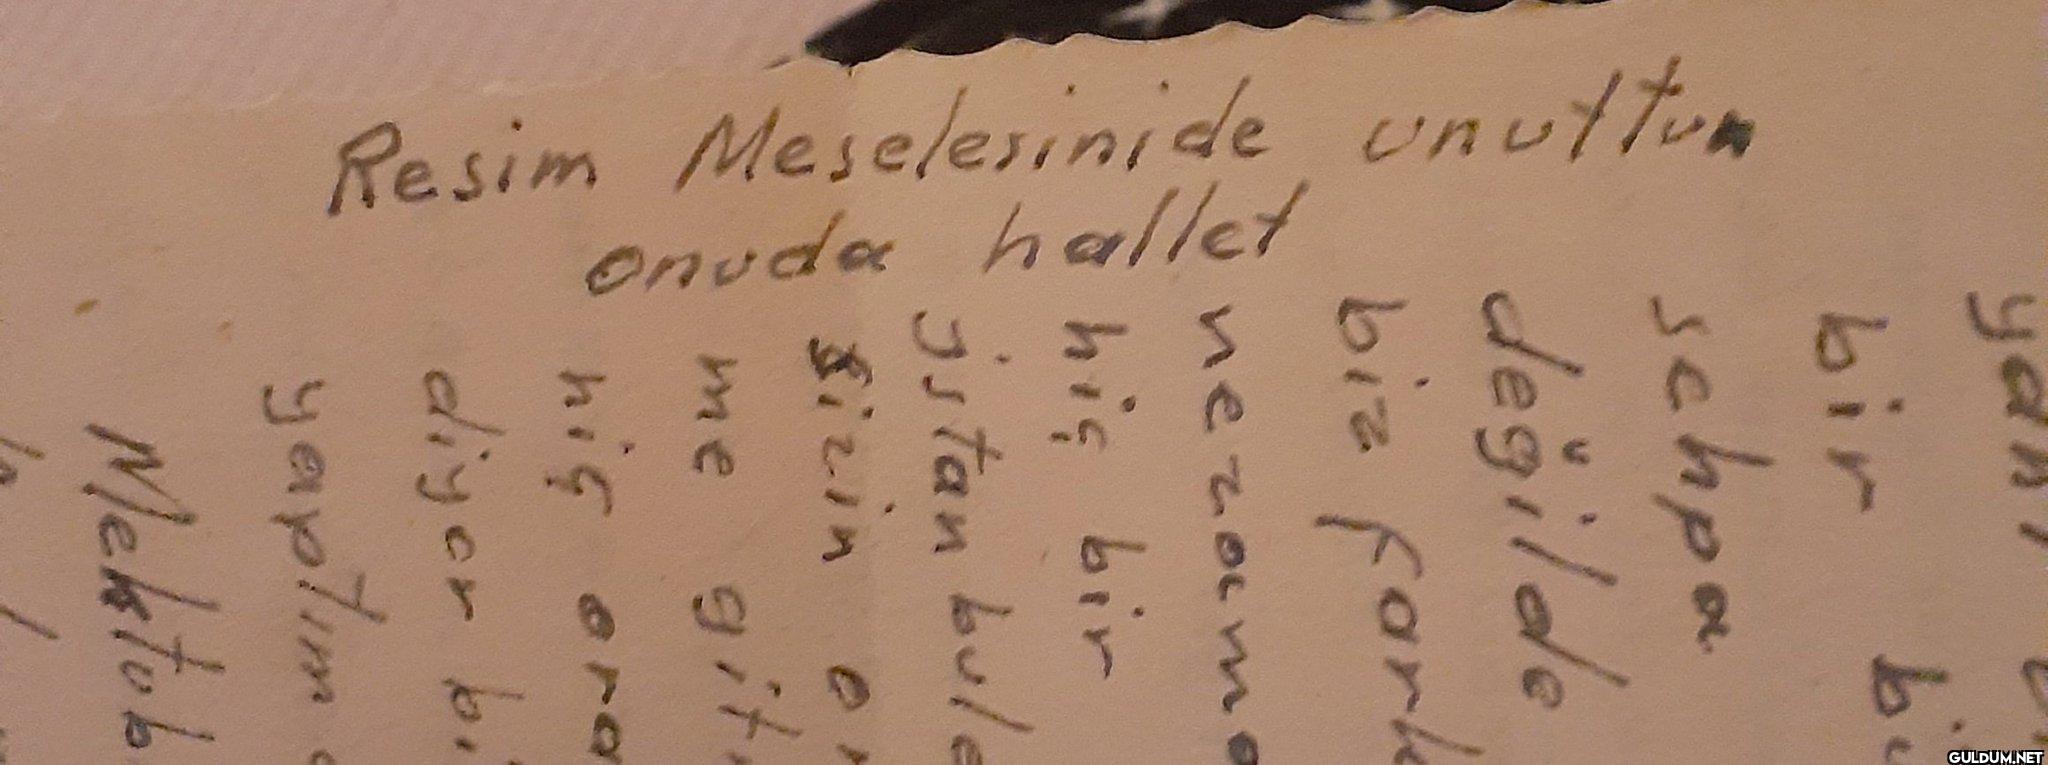 Resim Meselesinide unuttun
onuda hallet
yani
bir
sehpa
değilde
biz fark
nezama
hiç bir
istanbula
sizin
me git
hiç
diyor bi
yaptım
Mektub
GULDUM.NET